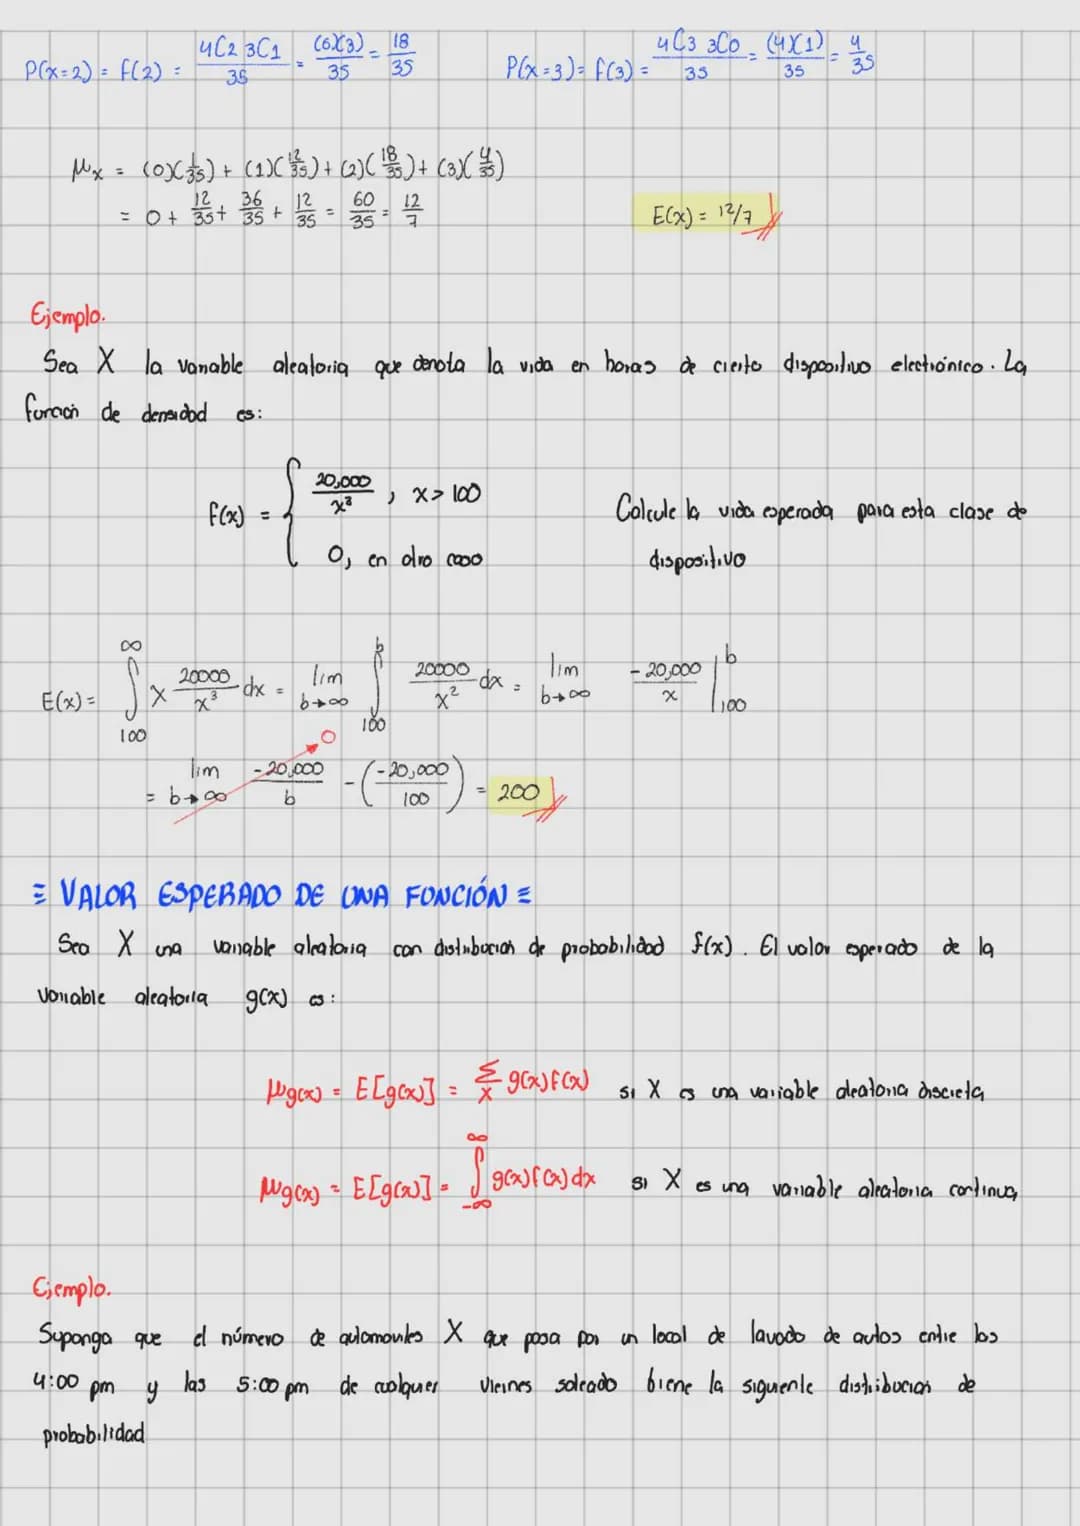 P(x=2) = f(2) = 4C2 3C1 / 35 = (6)(3) / 35 = 18/35    P(x=3) = f(3) = 4C3 3C0 / 35 = (4)(1) / 35 = 4/35
μx = (0)(1/35) + (1)(12/35) + (2)(18/35) + (3)(4/35)
= 0 + 12/35 + 36/35 + 12/35 = 60/35 = 12/7    E(x) = 12/7
Ejemplo.
Sea X la variable aleatoria que denota la vida en horas de cierto dispositivo electrónico. La
función de densidad es:
f(x) = { 20,000/x³ , x > 100
0, en otro caso
Calcule la vida esperada para esta clase de
dispositivo
E(x) = ∫₁₀₀^∞ x 20000/x³ dx = lim b→∞ ∫₁₀₀^b 20000/x² dx = lim b→∞ -20,000/x |₁₀₀^b
= lim b→∞ -20,000/b → 0 - (-20,000/100) = 200
≡ VALOR ESPERADO DE UNA FUNCIÓN ≡
Sea X una variable aleatoria con distribución de probabilidad f(x). El valor esperado de la
variable aleatoria g(x) es:
μg(x) = E[g(x)] = Σx g(x)f(x) si X es una variable aleatoria discreta
μg(x) = E[g(x)] = ∫₋∞^∞ g(x)f(x)dx si X es una variable aleatoria continua
Ejemplo.
Suponga que el número de automoviles X que pasa por un local de lavado de autos entre las
4:00 pm y las 5:00 pm de cualquier viernes soleado biene la siguiente distribución de
probabilidad